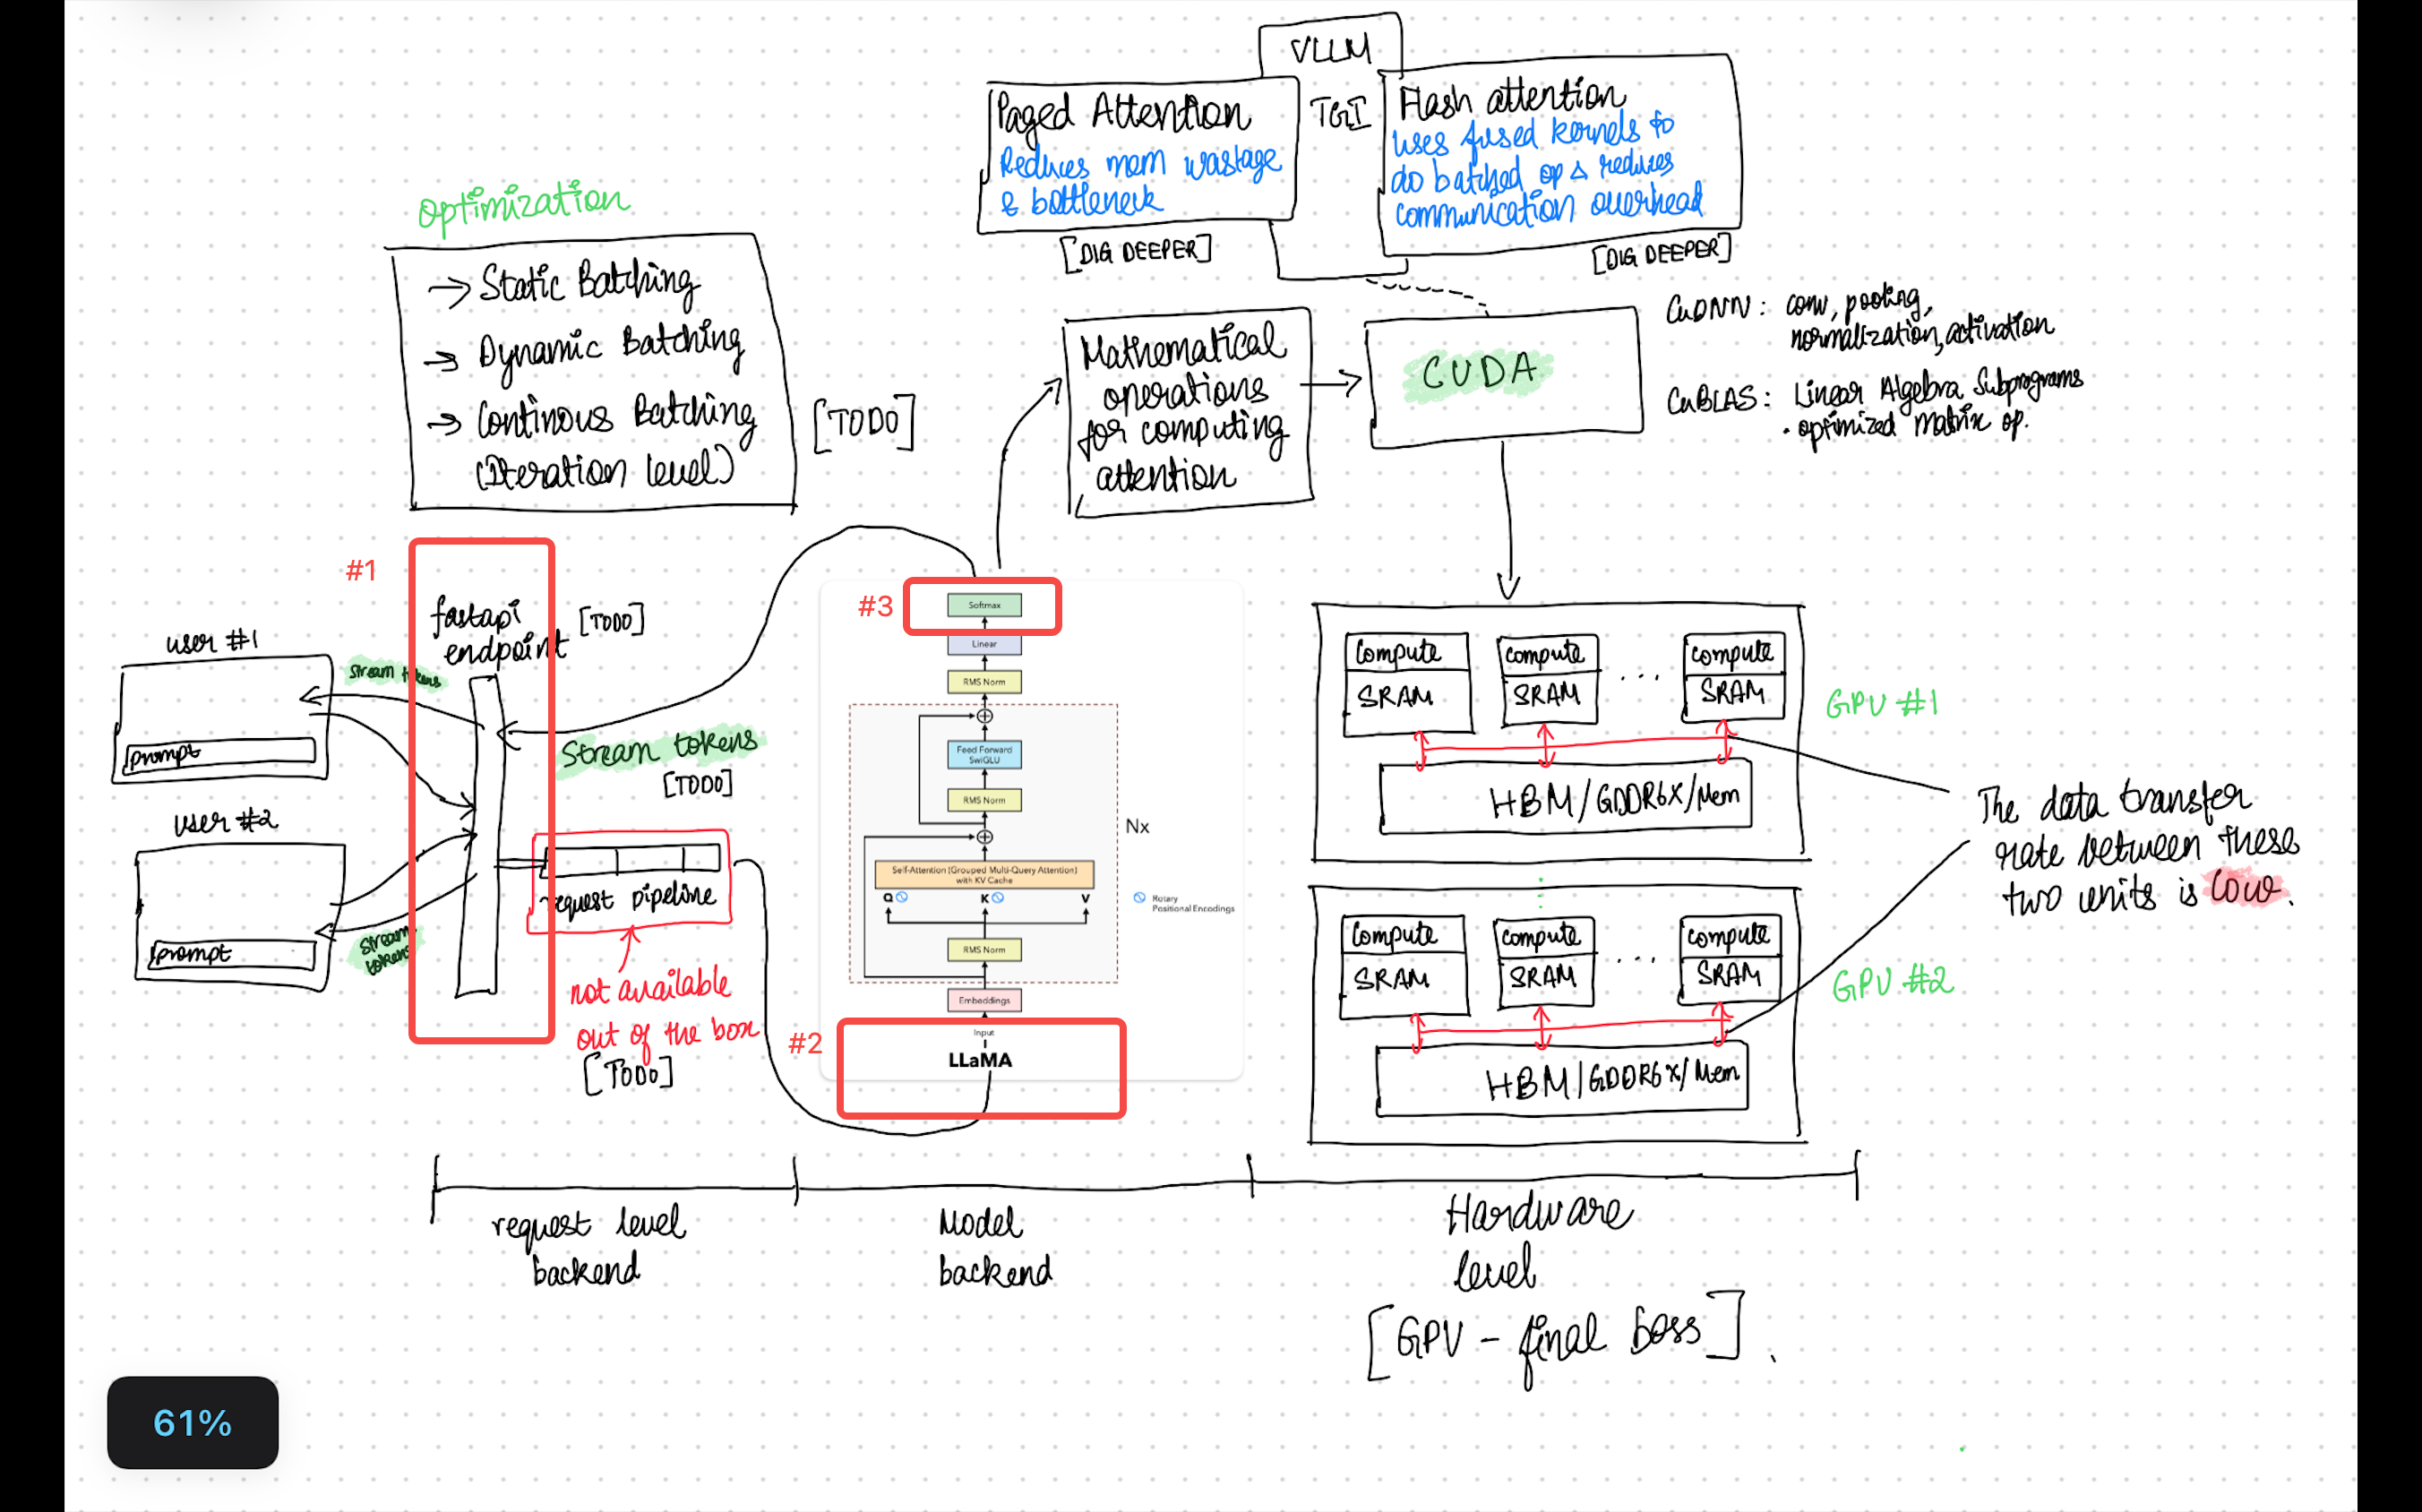 VLLM
Paged Attention
Reduces mem wastage
& bottleneck
[DIG DEEPER]
TGI
Flash attention
uses fused kernels to
do batched op & reduces
communication overhead
[DIG DEEPER]
Optimization
→ Static Batching
→ Dynamic Batching
→ Continous Batching
(Iteration level)
[TODO]
Mathematical
operations
for computing
attention
CUDA
CuDNN : conv, pooling,
normalization, activation
CuBLAS : Linear Algebra Subprograms
· optimized matrix op.
#1
fastapi
endpoint
[TODO]
user #1
stream tokens
prompt
user #2
stream
tokens
prompt
Stream tokens
[TODO]
request pipeline
not available
out of the box
[TODO]
#3
Softmax
Linear
RMS Norm
Feed Forward
SwiGLU
RMS Norm
Nx
Self-Attention (Grouped Multi-Query Attention)
with KV Cache
Q
K
V
Rotary
Positional Encodings
RMS Norm
Embeddings
#2
Input
LLaMA
compute
SRAM
compute
SRAM
...
compute
SRAM
HBM/GDDR6X/Mem
GPU #1
compute
SRAM
compute
SRAM
...
compute
SRAM
HBM/GDDR6X/Mem
GPU #2
The data transfer
rate between these
two units is low.
request level
backend
Model
backend
Hardware
level
[GPU - final boss].
61%